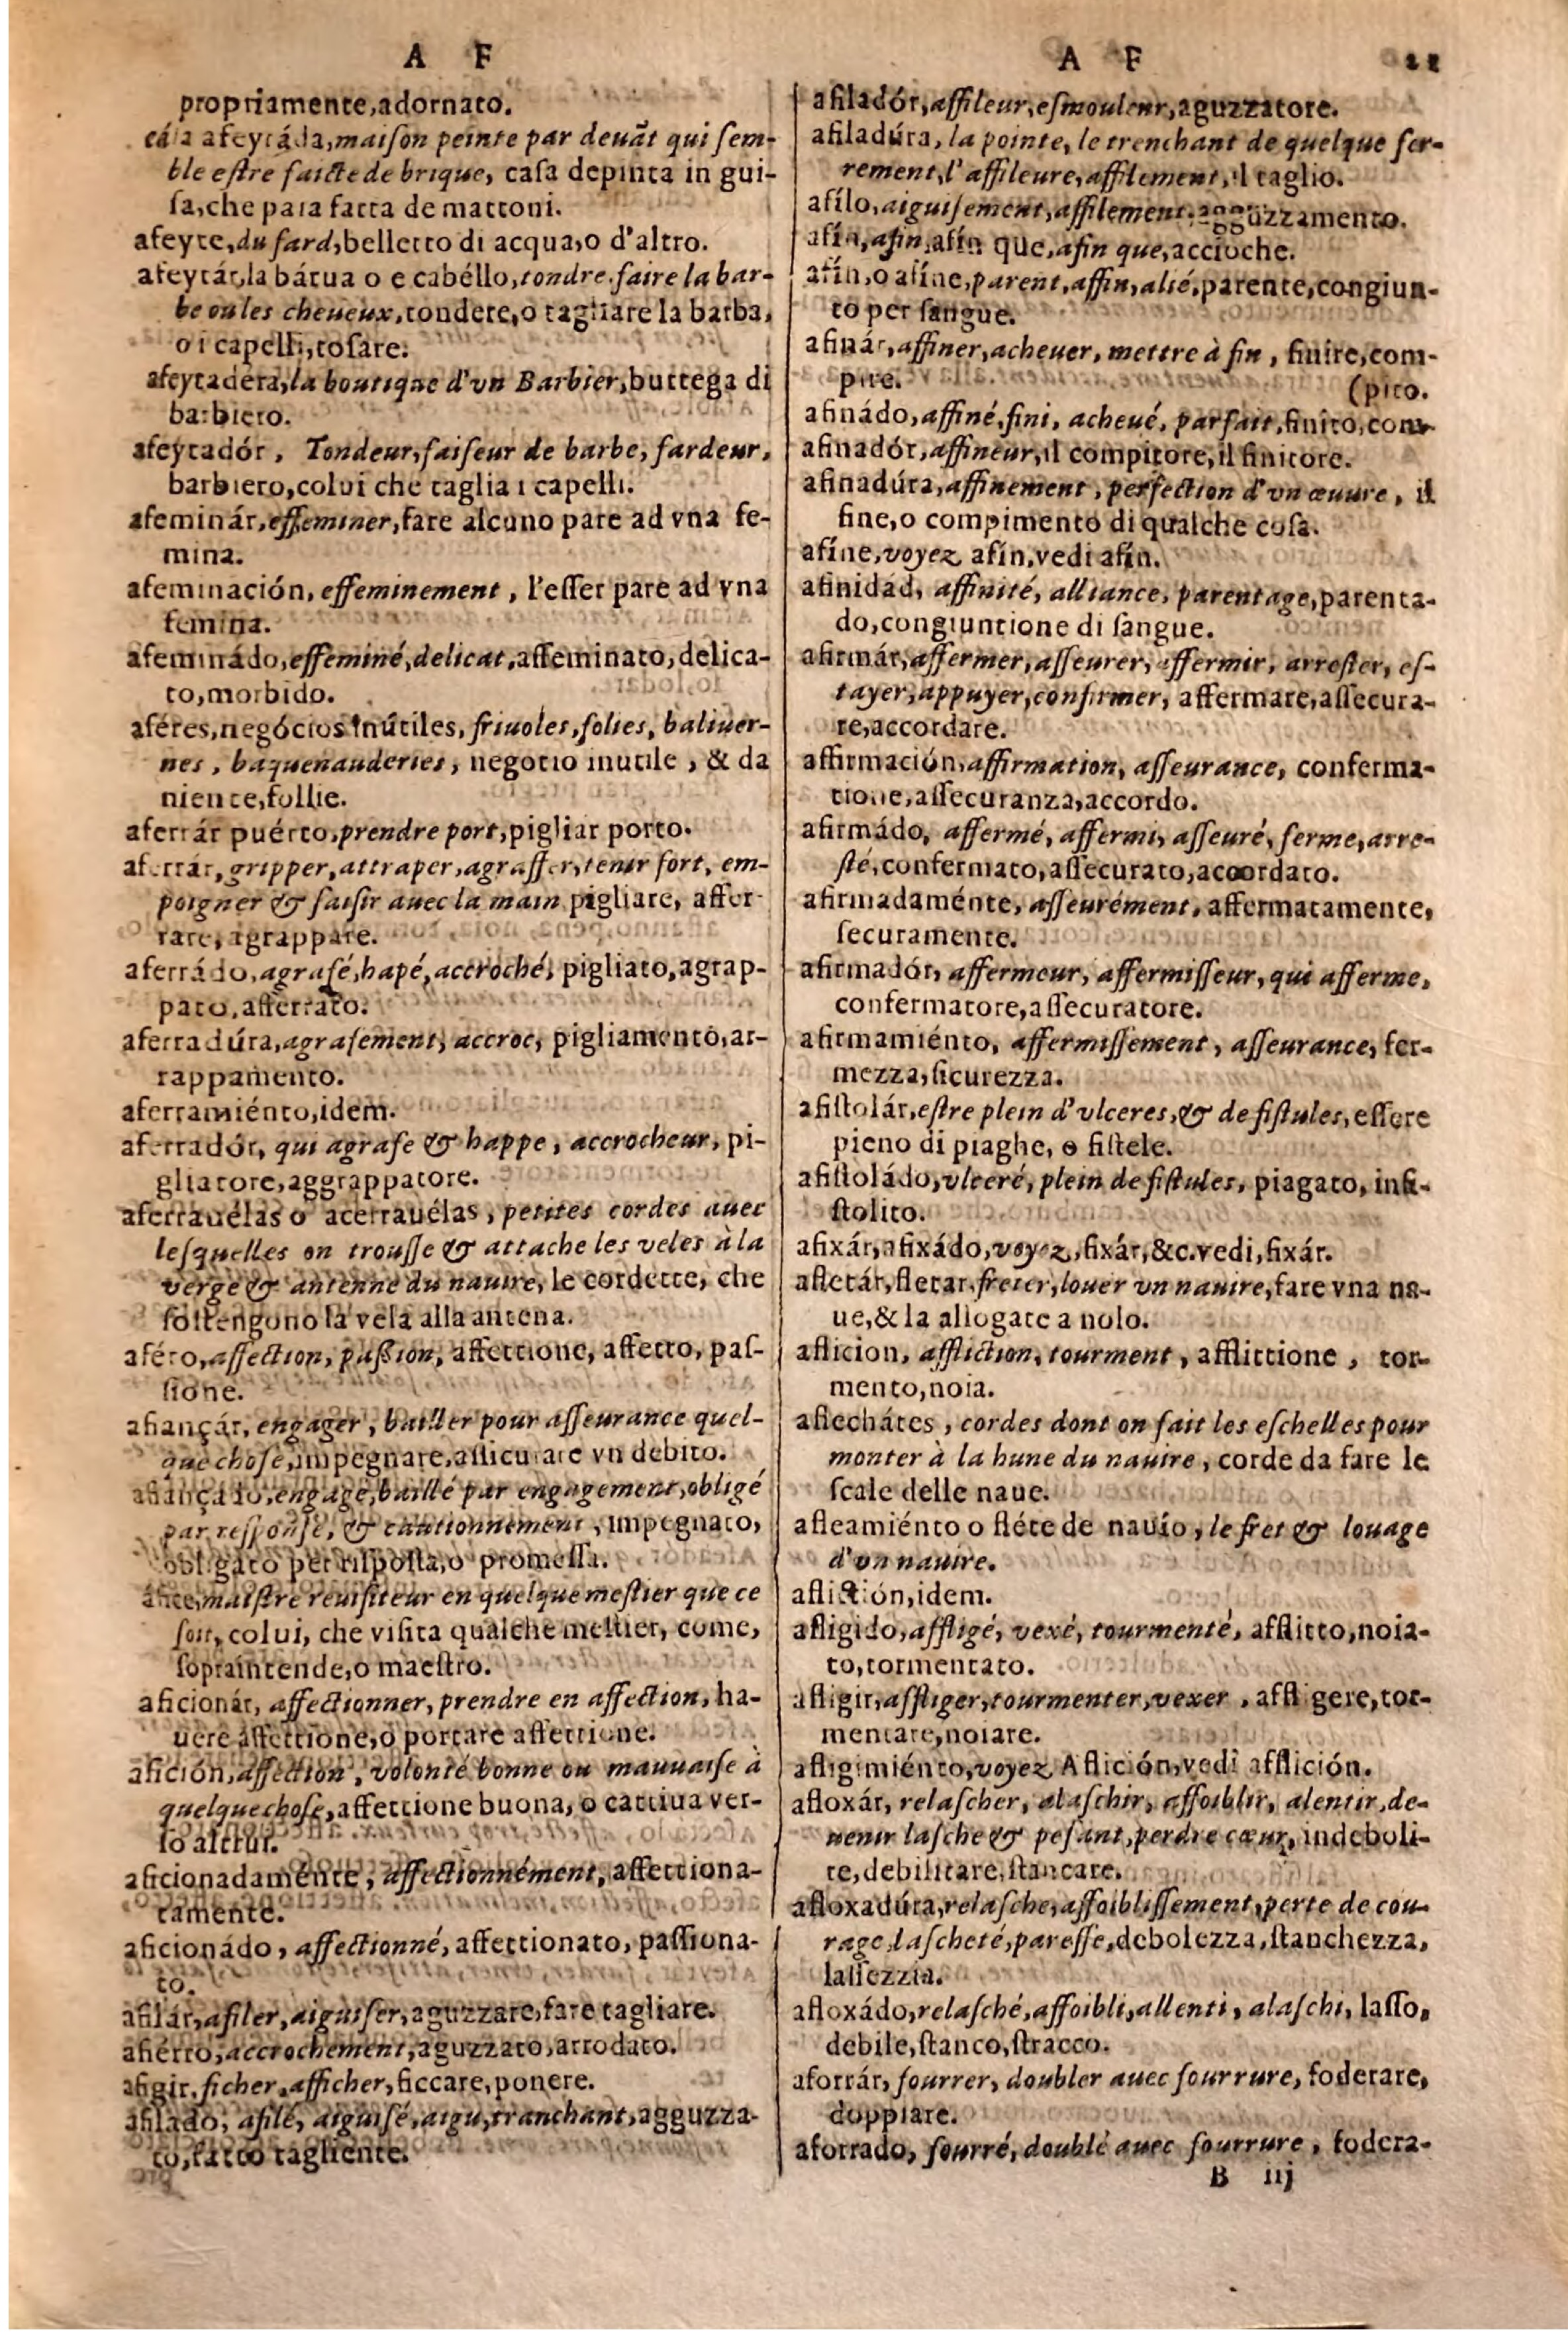 A F
propriamente,adornato.
cáſa afeytáda,maiſon peinte par deuãt qui ſem-
ble eſtre faicte de brique, caſa depinta in gui-
ſa,che para fatta de mattoni.
afeyte,du fard,belletto di acqua,o d'altro.
afeytár,la bárua o e cabéllo,tondre,faire la bar-
be ou les cheueux,tondere,o tagliare la barba,
o i capelli,toſare.
afeytadera,la boutique d'vn Barbier,buttega di
barbiero.
afeytadór, Tondeur,faiſeur de barbe, fardeur,
barbiero,colui che taglia i capelli.
afeminár,effeminer,fare alcuno pare ad vna fe-
mina.
afeminación, effeminement, l'eſſer pare ad vna
femina.
afeminádo,effeminé,delicat,affeminato,delica-
to,morbido.
aféres,negócios inútiles, friuoles,folies, baliuer-
nes, baquenauderies, negotio inutile, & da
niente,follie.
aferrár puérto,prendre port,pigliar porto.
aferrár,gripper,attraper,agraffer,tenir fort, em-
poigner & ſaiſir auec la main pigliare, affer-
rare, agrappare.
aferrádo,agrafé,hapé,accroché, pigliato,agrap-
pato,afferrato.
aferradúra,agrafement, accroc, pigliamento,ar-
rappamento.
aferramiénto,idem.
aferradór, qui agrafe & happe, accrocheur, pi-
gliatore,aggrappatore.
aferrauélas o acerrauélas, petites cordes auec
leſquelles on trouſſe & attache les veles à la
verge & antenne du nauire, le cordette, che
ſoſtengono la vela alla antena.
aféto,affection, paßion, affettione, affetto, paſ-
ſione.
afiançár, engager, bailler pour aſſeurance quel-
que choſe,impegnare,aſſicurare vn debito.
afiançádo,engagé,baillé par engagement,obligé
par reſponſe, & cautionnement, impegnato,
obligato per riſpoſta,o promeſſa.
áfice,maiſtre reuiſiteur en quelque meſtier que ce
ſoit, colui, che viſita qualche meſtier, come,
ſopraintende,o maeſtro.
aficionár, affectionner,prendre en affection, ha-
uere affettione,o portare affettione.
afición,affection, volonté bonne ou mauuaiſe à
quelque choſe,affettione buona, o cattiua ver-
ſo altrui.
aficionadaménte, affectionnément,affettiona-
tamente.
aficionádo, affectionné,affettionato, paſſiona-
to.
afilár,afiler,aiguiſer,aguzzare,fare tagliare.
afiérro,accrochement,aguzzato,arrodato.
afigir,ficher,afficher,ficcare,ponere.
afilado, afilé, aiguiſé,aigu,tranchant,agguzza-
to,fatto tagliente.
A F 21
afiladór,affileur,eſmouleur,aguzzatore.
afiladúra, la pointe, le trenchant de quelque fer-
rement,l'affileure,affilement,il taglio.
afílo,aiguiſement,affilement,agguzzamento.
afín,afin,afín que,afin que,accioche.
afín,o afíne,parent,affin,alié,parente,congiun-
to per ſangue.
afinár,affiner,acheuer, mettre à fin, finire,com-
pire. (pito.
afinádo,affiné,fini, acheué, parfait,finito,com-
afinadór,affineur,il compitore,il finitore.
afinadúra,affinement, perfection d'vn œuure, il
fine,o compimento di qualche coſa.
afíne,voyez afín,vedi afín.
afinidad, affinité, alliance, parentage,parenta-
do,congiuntione di ſangue.
afirmár,affermer,aſſeurer,affermir, arreſter, eſ-
tayer,appuyer,confirmer, affermare,aſſecura-
re,accordare.
affirmación,affirmation, aſſeurance, conferma-
tione,aſſecuranza,accordo.
afirmádo, affermé, affermi, aſſeuré, ferme,arre-
ſté,confermato,aſſecurato,accordato.
afirmadaménte, aſſeurément, affermatamente,
ſecuramente.
afirmadór, affermeur, affermiſſeur,qui afferme,
confermatore,aſſecuratore.
afirmamiénto, affermiſſement, aſſeurance, fer-
mezza,ſicurezza.
afiſtolár,eſtre plein d'vlceres,& de fiſtules,eſſere
pieno di piaghe, o fiſtele.
afiſtoládo,vlceré, plein de fiſtules, piagato, infi-
ſtolito.
afixár,afixádo,voyez,fixár,&c.vedi,fixár.
afletár,fletar,freter,louer vn nauire,fare vna na-
ue,& la allogare a nolo.
aflicion, affliction, tourment, afflittione, tor-
mento,noia.
aflechátes, cordes dont on fait les eſchelles pour
monter à la hune du nauire, corde da fare le
ſcale delle naue.
afleamiénto o fléte de nauío, le fret & louage
d'vn nauire.
aflictión,idem.
afligido,affligé, vexé, tourmenté, afflitto,noia-
to,tormentato.
afligir,affliger,tourmenter,vexer, affligere,tor-
mentare,noiare.
afligimiénto,voyez Aflición,vedi afflición.
afloxár, relaſcher, alaſchir, affoiblir, alentir,de-
uenir laſche & peſant,perdre cœur, indeboli-
re,debilitare,ſtancare.
afloxadúra,relaſche,affoibliſſement,perte de cou-
rage,laſcheté,pareſſe,debolezza,ſtanchezza,
laſſezzia.
afloxádo,relaſché,affoibli,allenti, alaſchi, laſſo,
debile,ſtanco,ſtracco.
aforrár, fourrer, doubler auec fourrure, foderare,
doppiare.
aforrado, fourré, doublé auec fourrure, fodera-
B iij